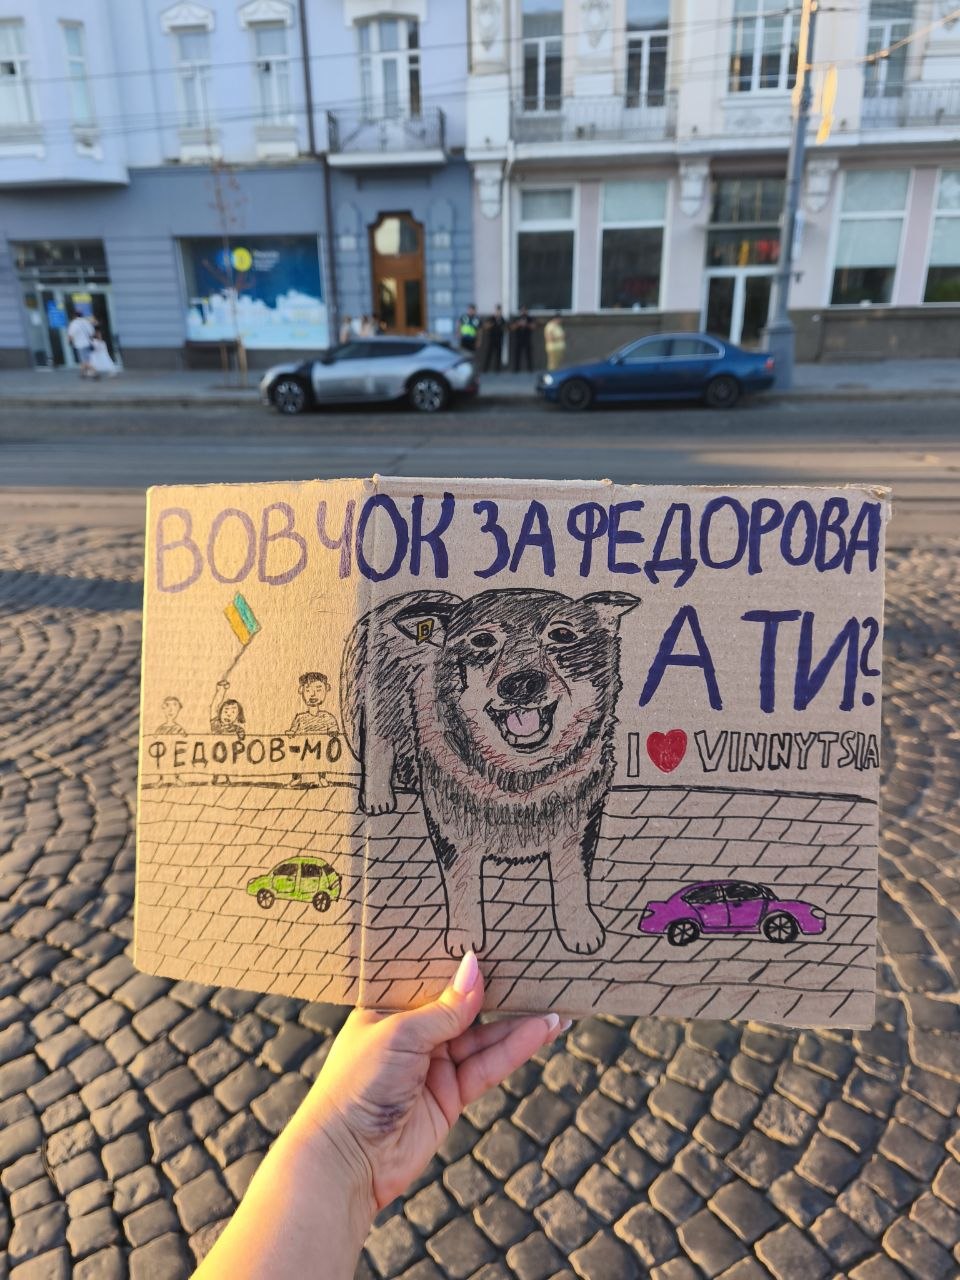 ВОВЧОК ЗА ФЕДОРОВА
А ТИ?
В
I ❤ VINNYTSIA
ФЕДОРОВ-МО